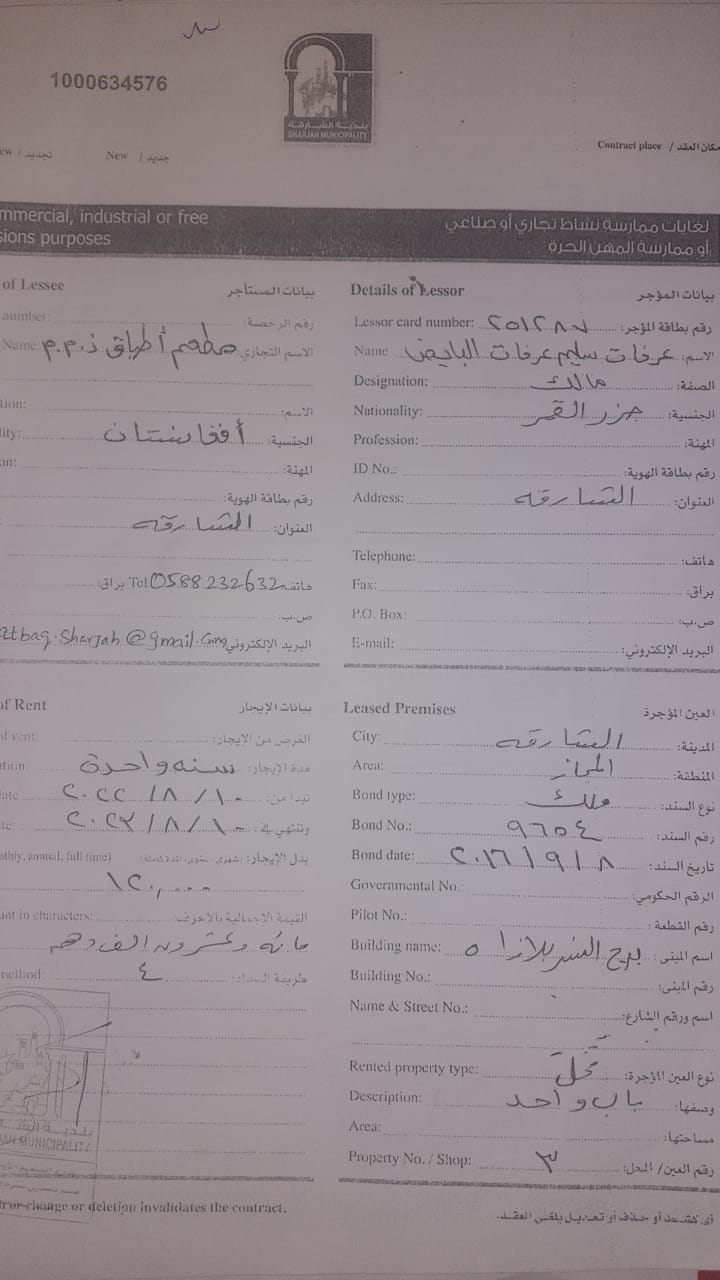 1000634576
بلدية الشارقة
SHARJAH MUNICIPALITY
Contract place / مكان العقد
ew / تجديد New / جديد
mmercial, industrial or free
sions purposes
لغايات ممارسة نشاط تجاري أو صناعي
أو ممارسة المهن الحرة
Details of Lessor بيانات المؤجر
Lessor card number: رقم بطاقة المؤجر:
Name الاسم: عرفات سليم عرفات
Designation: مالك الصفة:
Nationality: جزر القمر الجنسية:
Profession: المهنة:
ID No.: رقم بطاقة الهوية:
Address: الشارقه العنوان:
Telephone: هاتف:
Fax: براق:
P.O. Box: ص.ب:
E-mail: البريد الإلكتروني:
of Lessee بيانات المستأجر
number: رقم الرخصة:
Name: مطعم أطباق ذ.م.م الاسم التجاري
tion: الاسم:
ity: أفغانستان الجنسية:
on: المهنة:
رقم بطاقة الهوية:
الشارقه العنوان:
هاتف Tel 0588232632 براق:
ص.ب:
atbaq.Sharjah@gmail.com البريد الإلكتروني
Leased Premises العين المؤجرة
City: الشارقه المدينة:
Area: المجاز المنطقة:
Bond type: ملك نوع السند:
Bond No.: ٩٦٥٤ رقم السند:
Bond date: ٢٠١٦/٩/٨ تاريخ السند:
Governmental No.: الرقم الحكومي:
Pilot No.: رقم القطعة:
Building name: اسم المبنى: برج
Building No.: رقم المبنى:
Name & Street No.: اسم ورقم الشارع:
Rented property type: محل نوع العين المؤجرة:
Description: باب واحد وصفها:
Area: مساحتها:
Property No. / Shop: ٣ رقم العين/ المحل:
of Rent بيانات الإيجار
of rent: الغرض من الإيجار:
ation سنه واحدة مدة الإيجار:
ate ٢٠٢٢/٨/١٠ تبدأ من:
te: ٢٠٢٣/٨/١٠ وتنتهي في:
nthly, annual, full time) بدل الإيجار:
١٢٠,٠٠٠
unt in characters: القيمة الإجمالية بالأحرف:
مائه وعشرون الف درهم
method: ٤ طريقة السداد:
JAH MUNICIPALITY
r or change or deletion invalidates the contract.
أي كشط أو حذف أو تعديل يلغي العقد.